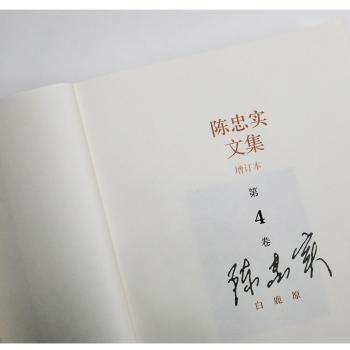 陈忠实
文集
增订本
第
4
卷
陈忠实
白鹿原